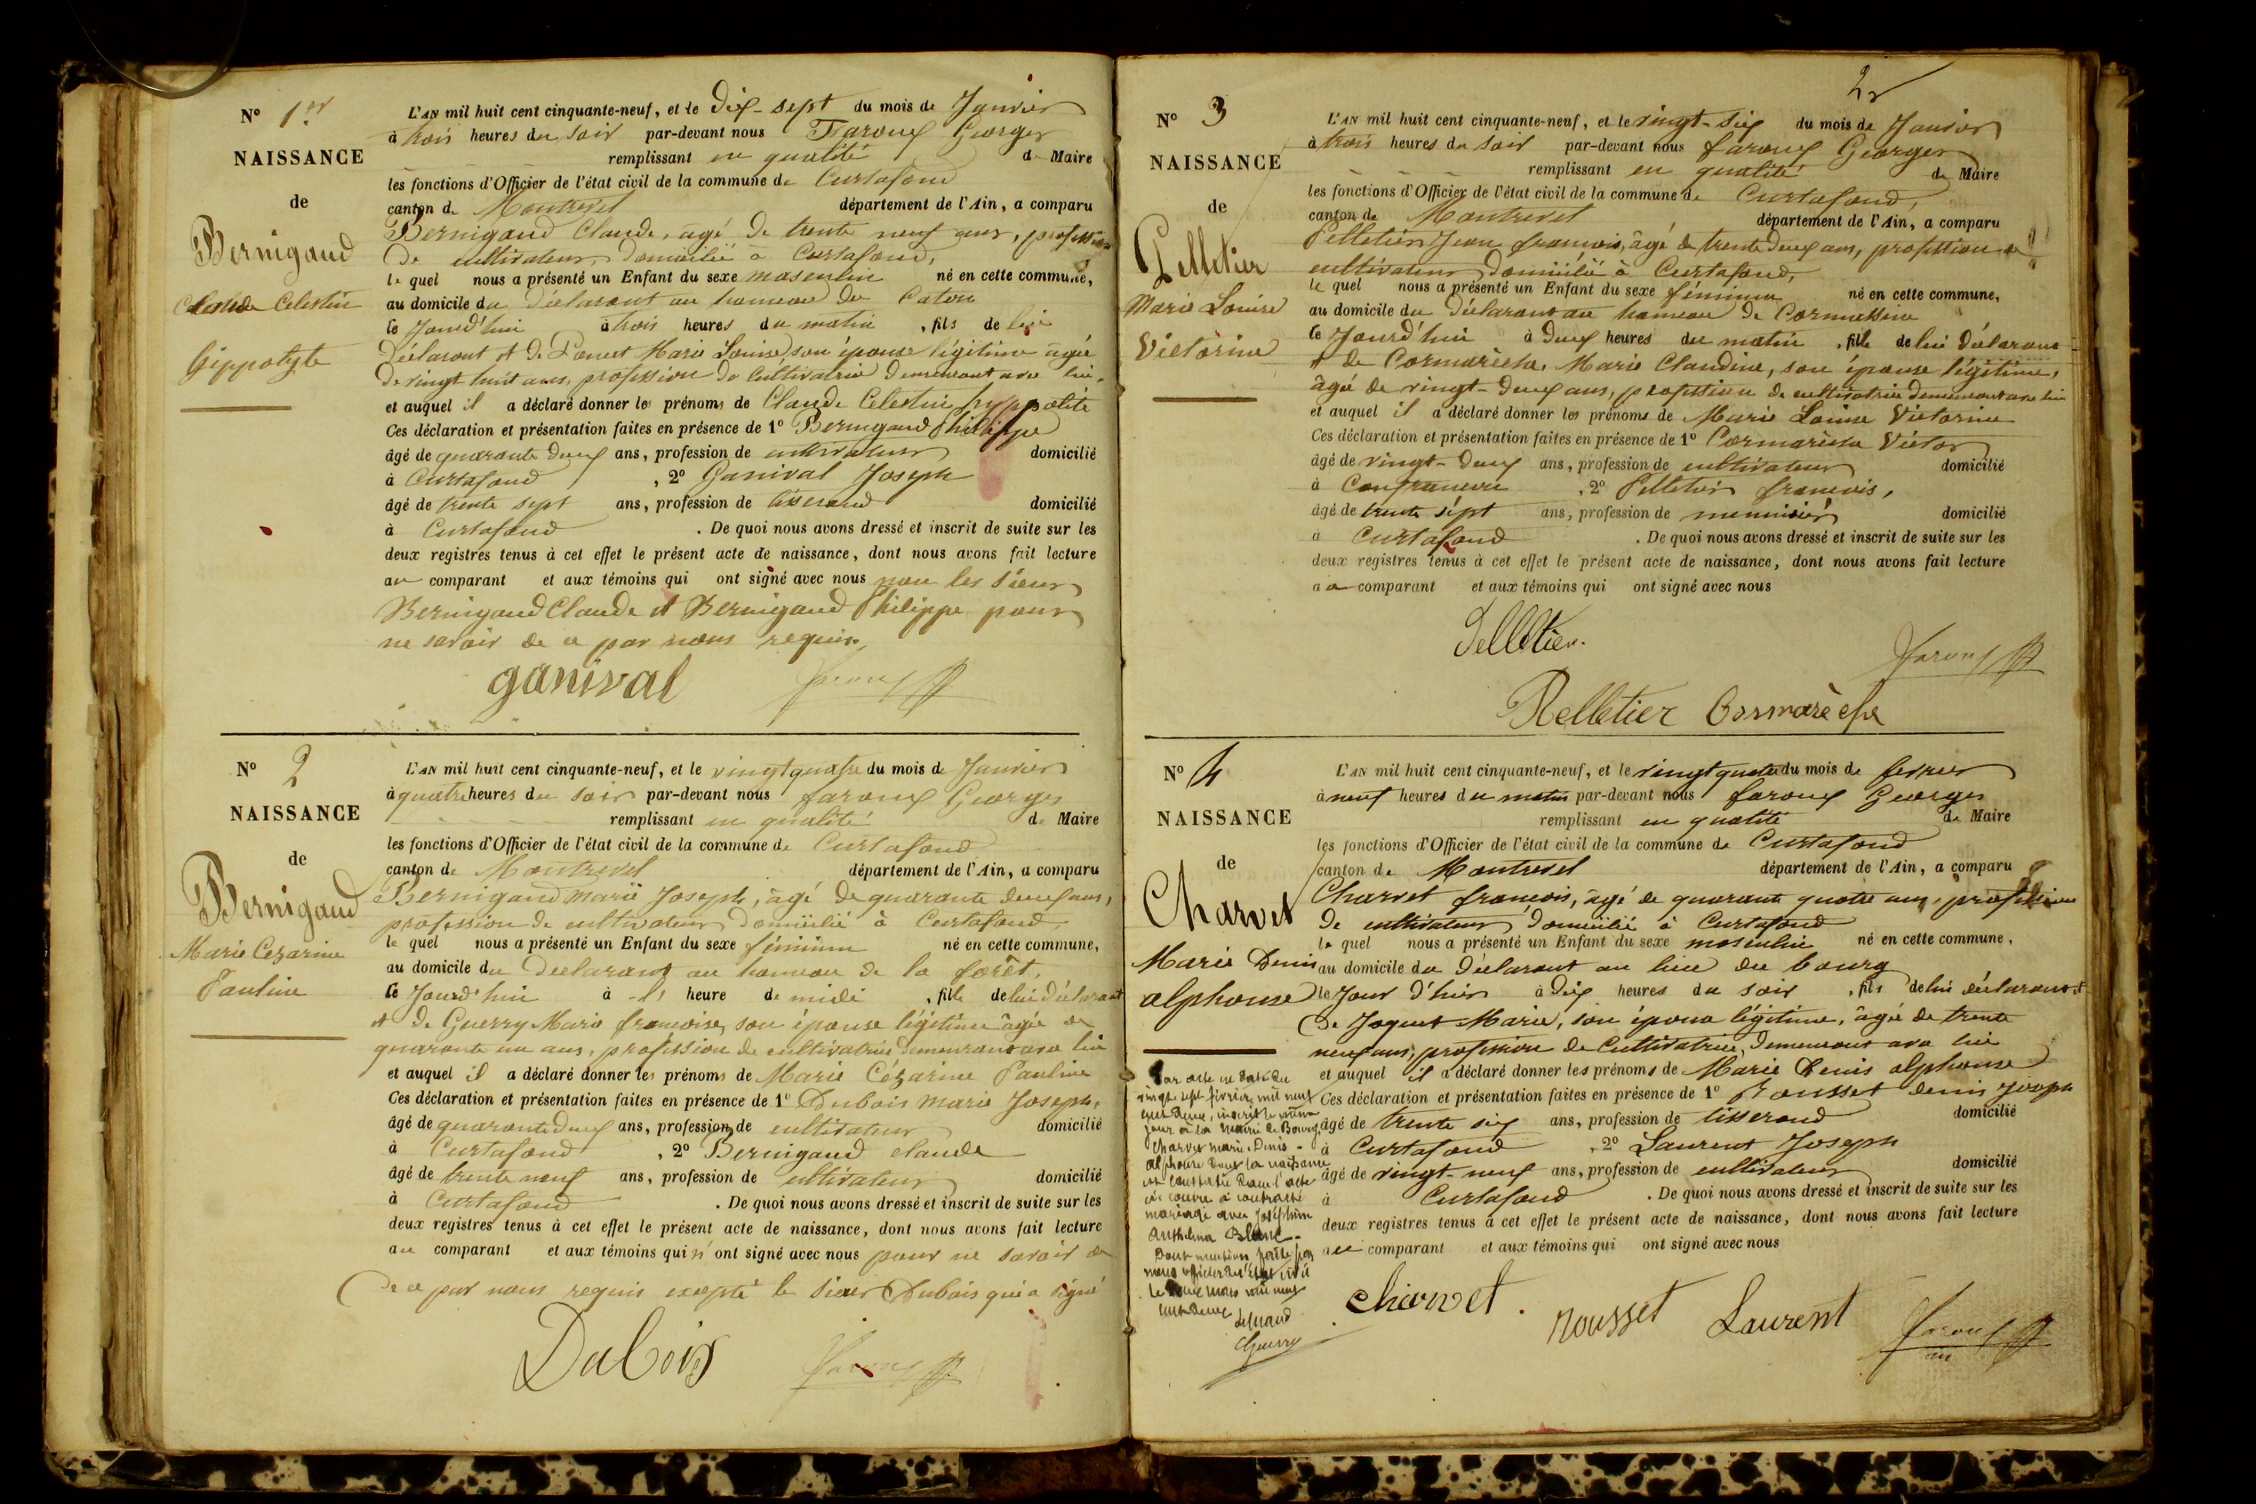 N° 1er
NAISSANCE
de
Bernigaud
Claude Celestin
hippolyte
L'AN mil huit cent cinquante-neuf, et le Dix-sept du mois de Janvier
à trois heures du soir par-devant nous Faroux Georges
remplissant en qualité de Maire
les fonctions d'Officier de l'état civil de la commune de Curtafond
canton de Montrevel département de l'Ain, a comparu
Bernigaud Claude, âgé de trente neuf ans, profession
de cultivateur, domicilié à Curtafond,
le quel nous a présenté un Enfant du sexe masculin né en cette commune,
au domicile du déclarant au hameau du Caton
le Jourd'hui à trois heures du matin, fils de lui
déclarant et de Marie Louise, son épouse légitime âgée
de vingt huit ans, profession de cultivatrice demeurant avec lui,
et auquel il a déclaré donner les prénoms de Claude Celestin hyppolite
Ces déclaration et présentation faites en présence de 1° Bernigaud Philippe
âgé de quarante deux ans, profession de cultivateur domicilié
à Curtafond, 2° Ganival Joseph
âgé de trente sept ans, profession de tisserand domicilié
à Curtafond. De quoi nous avons dressé et inscrit de suite sur les
deux registres tenus à cet effet le présent acte de naissance, dont nous avons fait lecture
au comparant et aux témoins qui ont signé avec nous non les sieurs
Bernigaud Claude et Bernigaud Philippe pour
ne savoir de ce par nous requis
ganival Faroux
N° 2
NAISSANCE
de
Bernigaud
Marie Cezarine
Pauline
L'AN mil huit cent cinquante-neuf, et le vingt quatre du mois de Janvier
à quatre heures du soir par-devant nous faroux Georges
remplissant en qualité de Maire
les fonctions d'Officier de l'état civil de la commune de Curtafond
canton de Montrevel département de l'Ain, a comparu
Bernigaud Marie Joseph, âgé de quarante deux ans,
profession de cultivateur domicilié à Curtafond
le quel nous a présenté un Enfant du sexe féminin né en cette commune,
au domicile du déclarant au hameau de la forêt,
le Jourd'hui à l' heure de midi, fille de lui déclarant
et de Guerry Marie françoise, son épouse légitime âgée de
quarante un ans, profession de cultivatrice demeurant avec lui
et auquel il a déclaré donner les prénoms de Marie Cézarine Pauline
Ces déclaration et présentation faites en présence de 1° Dubois Marie Joseph,
âgé de quarante deux ans, profession de cultivateur domicilié
à Curtafond, 2° Bernigaud claude
âgé de trente neuf ans, profession de cultivateur domicilié
à Curtafond. De quoi nous avons dressé et inscrit de suite sur les
deux registres tenus à cet effet le présent acte de naissance, dont nous avons fait lecture
au comparant et aux témoins qui n'ont signé avec nous pour ne savoir de
de ce par nous requis excepté le sieur Dubois qui a signé
Dubois Faroux
2
N° 3
NAISSANCE
de
Pelletier
Marie Louise
Victorine
L'AN mil huit cent cinquante-neuf, et le vingt-six du mois de Janvier
à trois heures du soir par-devant nous faroux Georges
remplissant en qualité de Maire
les fonctions d'Officier de l'état civil de la commune de Curtafond,
canton de Montrevel département de l'Ain, a comparu
Pelletier Jean françois, âgé de trente deux ans, profession de
cultivateur domicilié à Curtafond,
le quel nous a présenté un Enfant du sexe féminin né en cette commune,
au domicile du déclarant au hameau de
le Jourd'hui à deux heures du matin, fille de lui déclarant
et de Cormarèche Marie Claudine, son épouse légitime,
âgée de vingt-deux ans, profession de cultivatrice demeurant avec lui
et auquel il a déclaré donner les prénoms de Marie Louise Victorine
Ces déclaration et présentation faites en présence de 1° Cormarèche Victor
âgé de vingt-deux ans, profession de cultivateur domicilié
à Confrançon, 2° Pelletier françois,
âgé de trente sept ans, profession de menuisier domicilié
à Curtafond. De quoi nous avons dressé et inscrit de suite sur les
deux registres tenus à cet effet le présent acte de naissance, dont nous avons fait lecture
au comparant et aux témoins qui ont signé avec nous
Pelletier. Faroux
Pelletier Cormarèche
N° 4
NAISSANCE
de
Charvet
Marie Denis
alphonse
L'AN mil huit cent cinquante-neuf, et le vingt quatre du mois de fevrier
à neuf heures du matin par-devant nous faroux Georges
remplissant en qualité de Maire
les fonctions d'Officier de l'état civil de la commune de Curtafond
canton de Montrevel département de l'Ain, a comparu
Charvet françois, âgé de quarante quatre ans, profession
de cultivateur domicilié à Curtafond
le quel nous a présenté un Enfant du sexe masculin né en cette commune,
au domicile du déclarant au lieu du bourg
le Jour d'hier à dix heures du soir, fils de lui déclarant et
de Joguet Marie, son épouse légitime, âgée de trente
neuf ans, profession de Cultivatrice, demeurant avec lui
et auquel il a déclaré donner les prénoms de Marie Denis alphonse
Ces déclaration et présentation faites en présence de 1° Rousset denis Joseph
âgé de trente six ans, profession de tisserand domicilié
à Curtafond, 2° Laurent Joseph
âgé de vingt-neuf ans, profession de cultivateur domicilié
à Curtafond. De quoi nous avons dressé et inscrit de suite sur les
deux registres tenus à cet effet le présent acte de naissance, dont nous avons fait lecture
au comparant et aux témoins qui ont signé avec nous
charvet. rousset Laurent Faroux
Par acte en date du
vingt sept février mil neuf
cent deux, inscrit le même
jour à la mairie de Bourg,
Charvet Marie Denis
alphonse dont la naissance
est constatée dans l'acte
ci contre a contracté
mariage avec Joséphine
Anthelma Blanc
Dont mention faite par
nous officier de l'Etat civil
le mars mil neuf
cent deux
Guerry